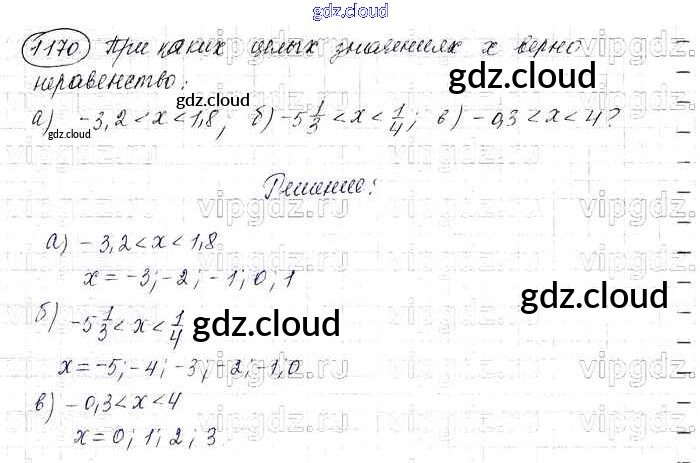 gdz.cloud
1170 При каких целых значениях x верно
неравенство:
gdz.cloud
gdz.cloud
а) -3,2 < x < 1,8; б) -5 1/3 < x < 1/4; в) -0,3 < x < 4?
gdz.cloud
gdz.cloud
vipgdz.ru vipgdz.ru
Решение:
vipgdz.ru vipgdz.ru
а) -3,2 < x < 1,8
x = -3; -2; -1; 0; 1
gdz.cloud
б) -5 1/3 < x < 1/4
gdz.cloud
vipgdz.ru vipgdz.ru
x = -5; -4; -3; -2; -1, 0
в) -0,3 < x < 4
x = 0; 1; 2; 3
vipgdz.ru vipgdz.ru